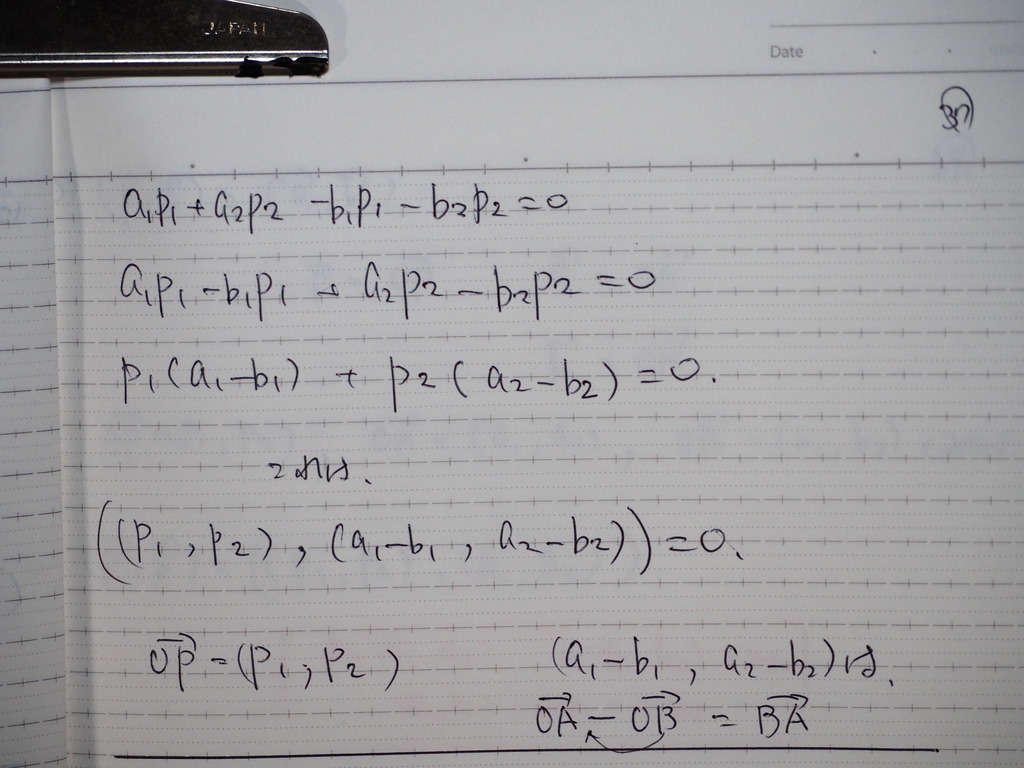 JAPAN
Date
a₁p₁+a₂p₂ -b₁p₁-b₂p₂=0
a₁p₁-b₁p₁ + a₂p₂-b₂p₂=0
p₁(a₁-b₁) + p₂(a₂-b₂)=0.
これは、
((p₁,p₂),(a₁-b₁, a₂-b₂))=0、
OP→=(p₁,p₂) (a₁-b₁, a₂-b₂)は、
OA→-OB→ = BA→